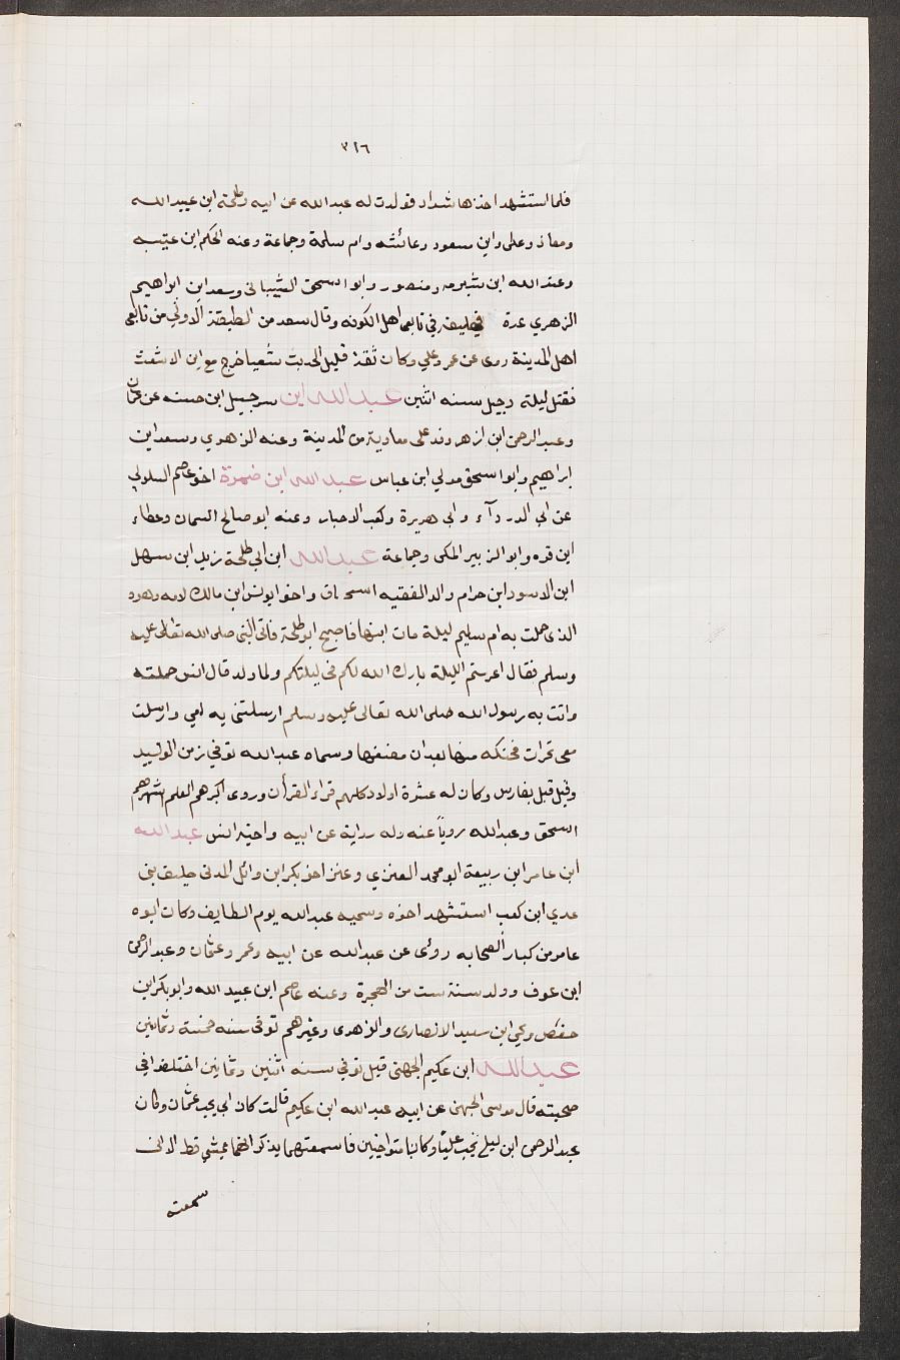 ٣١٦
فلما استشهد اخذها شداد فولدت له عبد الله عن ابيه وطلحة ابن عبيد الله
ومعاذ وعلى وابن مسعود وعائشه وام سلمة وجماعة وعنه الحكم ابن عتيبه
وعبد الله ابن شبرمه ومنصور وابو اسحق الشيبانى وسعد ابن ابراهيم
الزهري عدة خليفة في تابعى اهل الكوفه وقال سعد من الطبقة الاولى من تابعى
اهل المدينة روى عن عمر وعلي وكان ثقة قليل الحديث شعيا خرج مع ابن الاشعث
فقتل ليلة دجيل سنه اثنين عبد الله ابن سرحبيل ابن حسنه عن عثمان
وعبد الرحمن ابن ازهر وفد على معاوية من المدينة وعنه الزهري وسعد ابن
ابراهيم وابو اسحق مولي ابن عباس عبد الله ابن ضمرة اخو عاصم السلولي
عن ابي الدردآء وابي هريرة وكعب الاحبار وعنه ابو صالح السمان وعطاء
ابن قره وابو الزبير المكى وجماعة عبد الله ابن ابي طلحة زيد ابن سهل
ابن الاسود ابن حرام والد الفقيه اسحاق واخو انس ابن مالك لامه وهو
الذى حملت به ام سليم ليلة مات ابنها فاصبح ابو طلحة فاتى النبى صلى الله تعالى عليه
وسلم فقال اعرستم الليلة بارك الله لكم فى ليلتكم ولما ولد قال انس حملته
واتت به رسول الله صلى الله تعالى عليه وسلم ارسلتنى به امي وارسلت
معى تمرات فحنكه منها بعد ان مضغها وسماه عبد الله توفي زمن الوليد
وقيل قبل بفارس وكان له عشرة اولاد كلهم قراء القرأن وروى اكثرهم العلم اشهرهم
اسحق وعبد الله رويا عنه وله رواية عن ابيه واخيه انس عبد الله
ابن عامر ابن ربيعة ابو محمد العنزي وعنز اخو بكر ابن وائل المدنى حليف بنى
عدي ابن كعب استشهد اخوه وسميه عبد الله يوم الطايف وكان ابوه
عامر من كبار الصحابه روى عن عبد الله عن ابيه وعمر وعثمان وعبد الرحمن
ابن عوف وولد سنة ست من الهجرة وعنه عاصم ابن عبيد الله وابو بكر ابن
حفص ويحي ابن سعيد الانصارى والزهرى وغيرهم توفى سنه خمسة وثمانين
عبد الله ابن عكيم الجهنى قيل توفي سنه اثنين وثمانين اختلف في
صحبته قال موسى الجهنى عن ابيه عبد الله ابن عكيم قالت كان ابي يحب عثمان وكان
عبد الرحمن ابن ليلى يحب عليًا وكانا متواخيين فما سمعتهما يذكرانهما بشي قط الا انى
سمعته